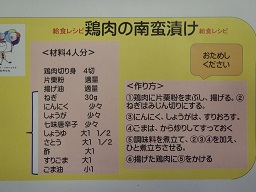 給食レシピ 鶏肉の南蛮漬け 給食レシピ
おためし
ください
<材料4人分>
鶏肉切り身 4切
片栗粉 適量
揚げ油 適量
ねぎ 30g
にんにく 少々
しょうが 少々
七味唐辛子 少々
しょうゆ 大1 1/2
さとう 大1 1/2
酢 大1
すりごま 大1
ごま油 小1
<作り方>
①鶏肉に片栗粉をまぶし、揚げる、②
ねぎはみじん切りにする。
③にんにく、しょうがは、すりおろす。
④ごまは、から炒りしてすっておく
⑤調味料を煮立て、②③④を加え、
ひと煮立ちさせる。
⑥揚げた鶏肉に⑤をかける